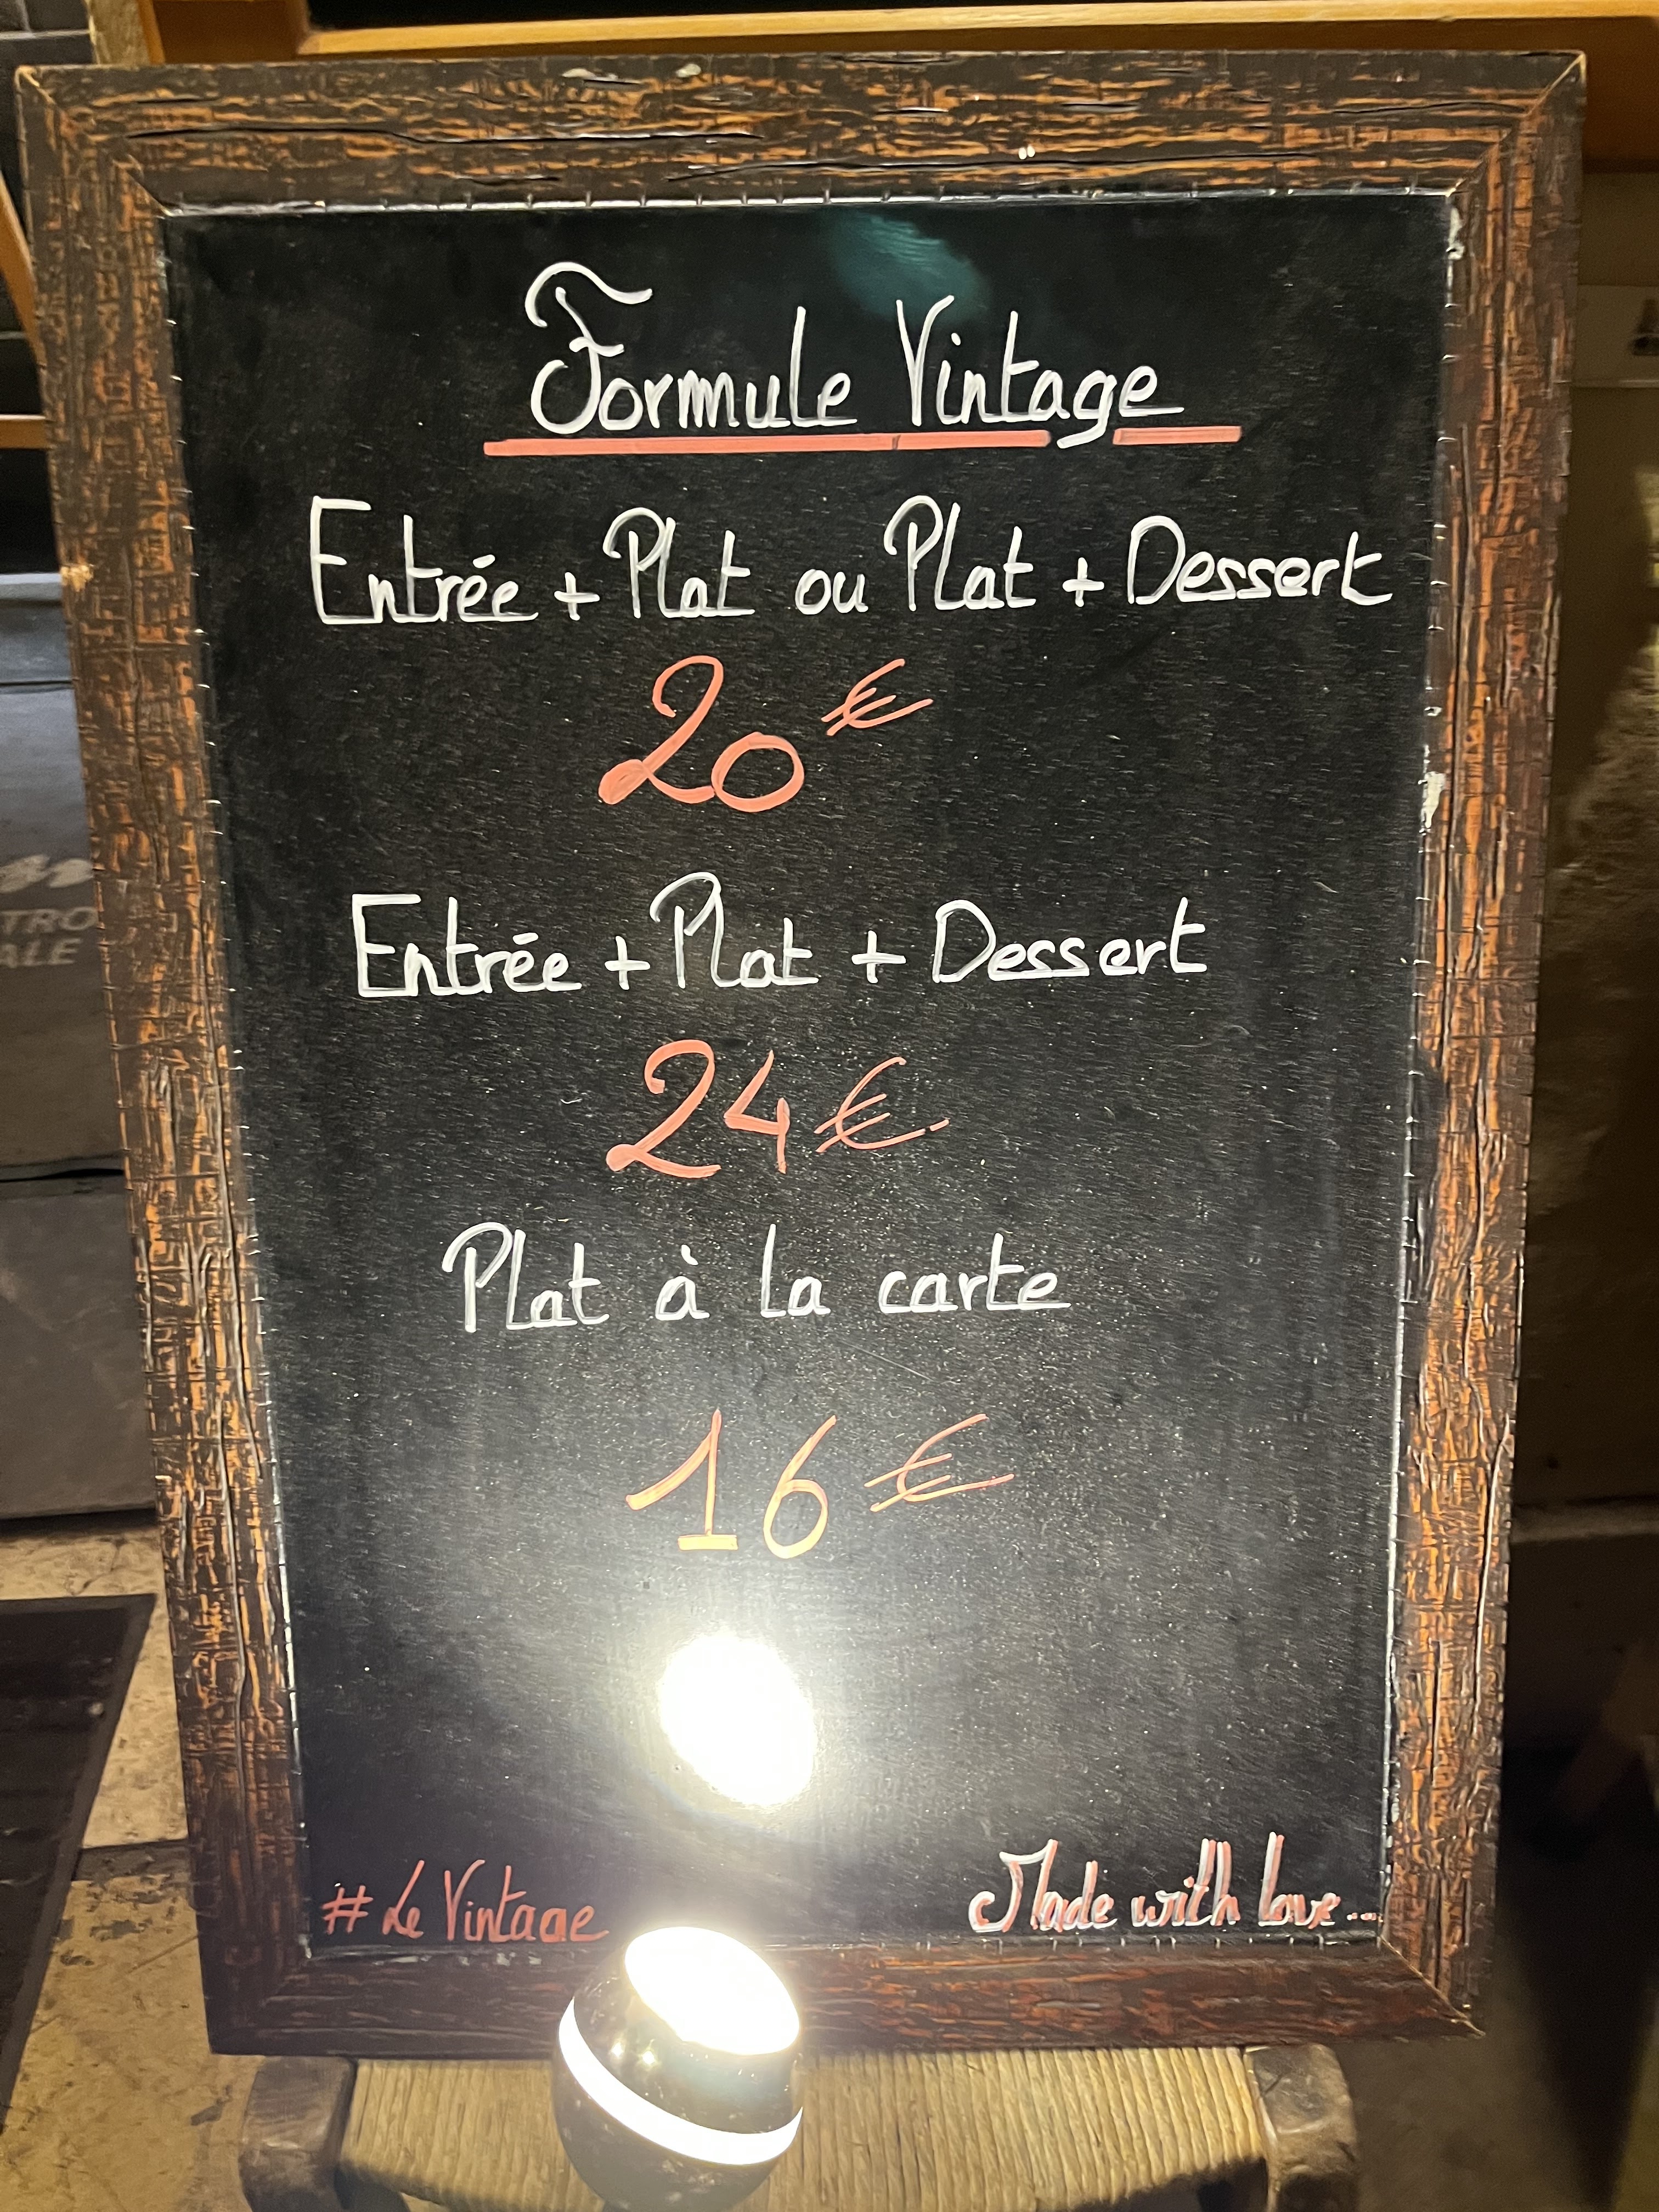 Formule Vintage
Entrée + Plat ou Plat + Dessert
20€
Entrée + Plat + Dessert
24€.
Plat à la carte
16€
# Le Vintage
Made with love...
TRO
ALE